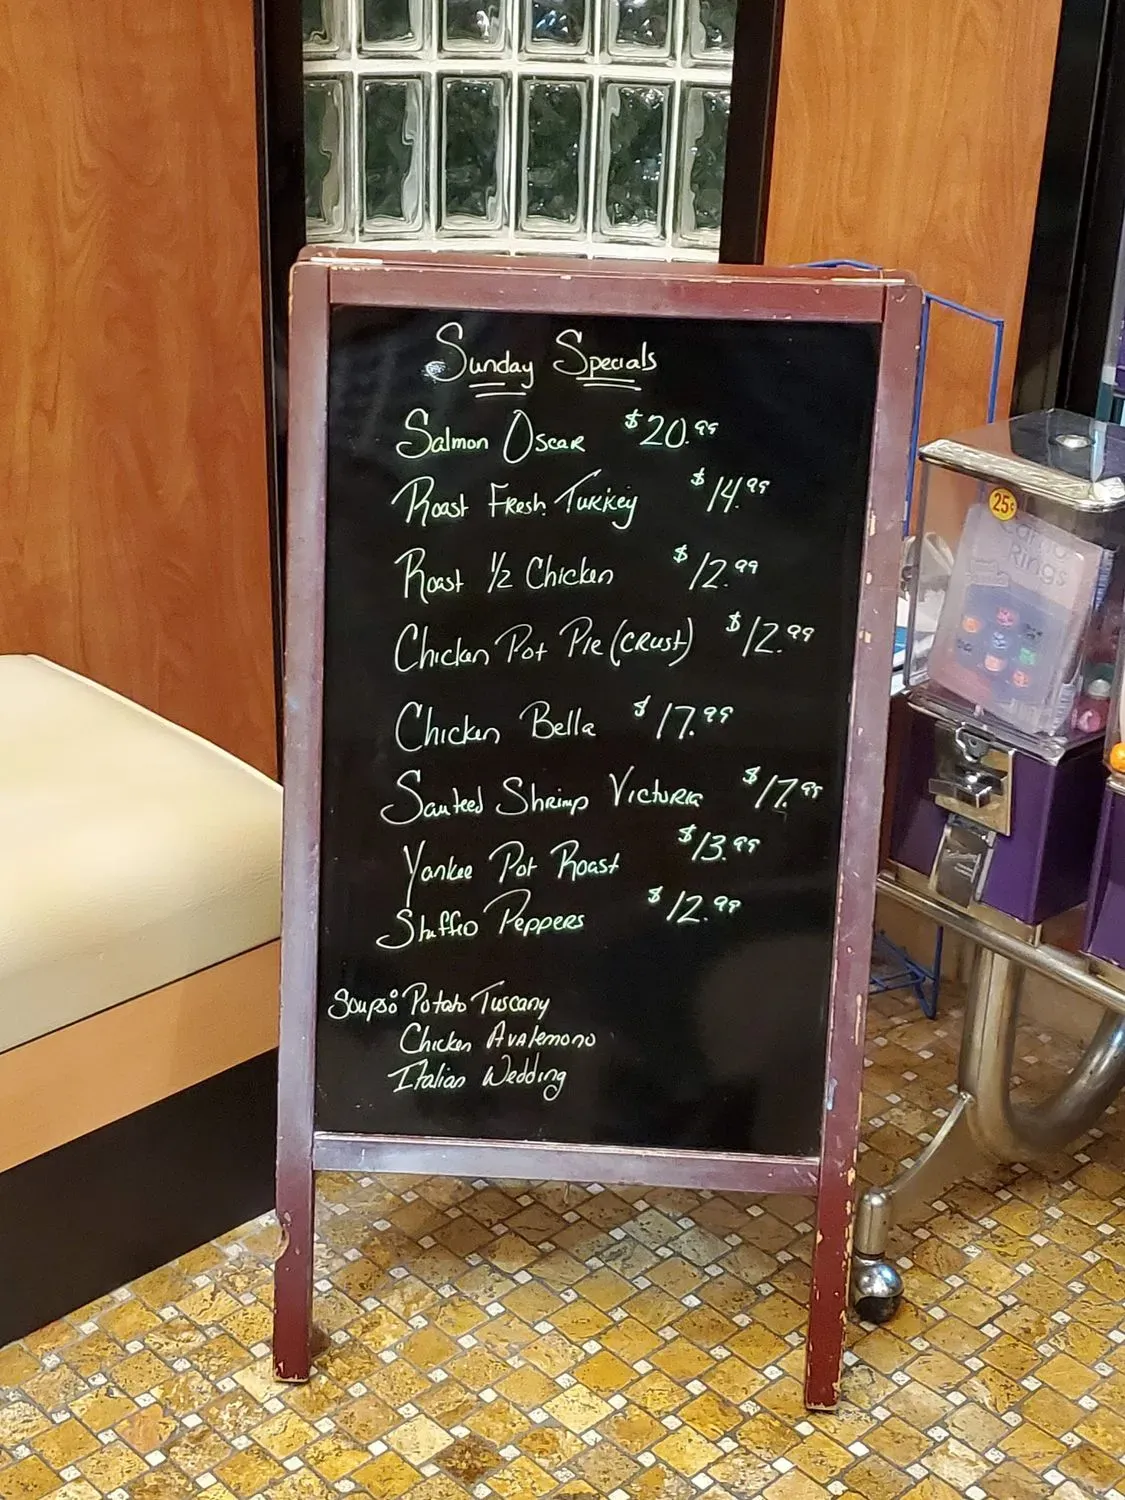 Sunday Specials
Salmon Oscar $20.99
Roast Fresh Turkey $14.99
Roast 1/2 Chicken $12.99
Chicken Pot Pie (Crust) $12.99
Chicken Bella $17.99
Sauteed Shrimp Victoria $17.99
Yankee Pot Roast $13.99
Stuffed Peppers $12.99
Soups: Potato Tuscany
Chicken Avalemono
Italian Wedding
25¢
Rings